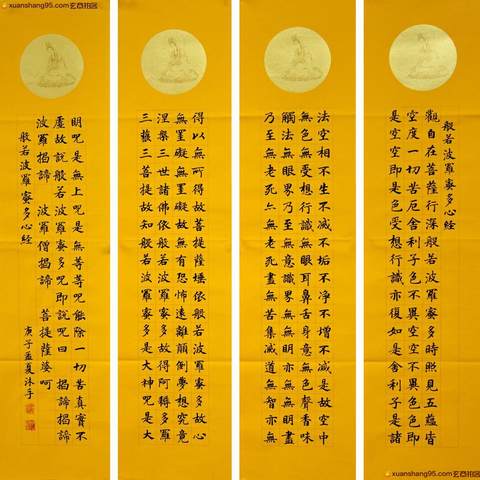 xuanshang95.com
般若波羅蜜多心經
觀自在菩薩行深般若波羅蜜多時照見五蘊皆
空度一切苦厄舍利子色不異空空不異色色即
是空空即是色受想行識亦復如是舍利子是諸
法空相不生不滅不垢不淨不增不減是故空中
無色無受想行識無眼耳鼻舌身意無色聲香味
觸法無眼界乃至無意識界無無明亦無無明盡
乃至無老死亦無老死盡無苦集滅道無智亦無
得以無所得故菩提薩埵依般若波羅蜜多故心
無罣礙無罣礙故無有恐怖遠離顛倒夢想究竟
涅槃三世諸佛依般若波羅蜜多故得阿耨多羅
三藐三菩提故知般若波羅蜜多是大神呪是大
明呪是無上呪是無等等呪能除一切苦真實不
虛故說般若波羅蜜多呪即說呪曰 揭諦揭諦
波羅揭諦 波羅僧揭諦 菩提薩婆呵
般若波羅蜜多心經 庚子孟夏沐手
xuanshang95.com